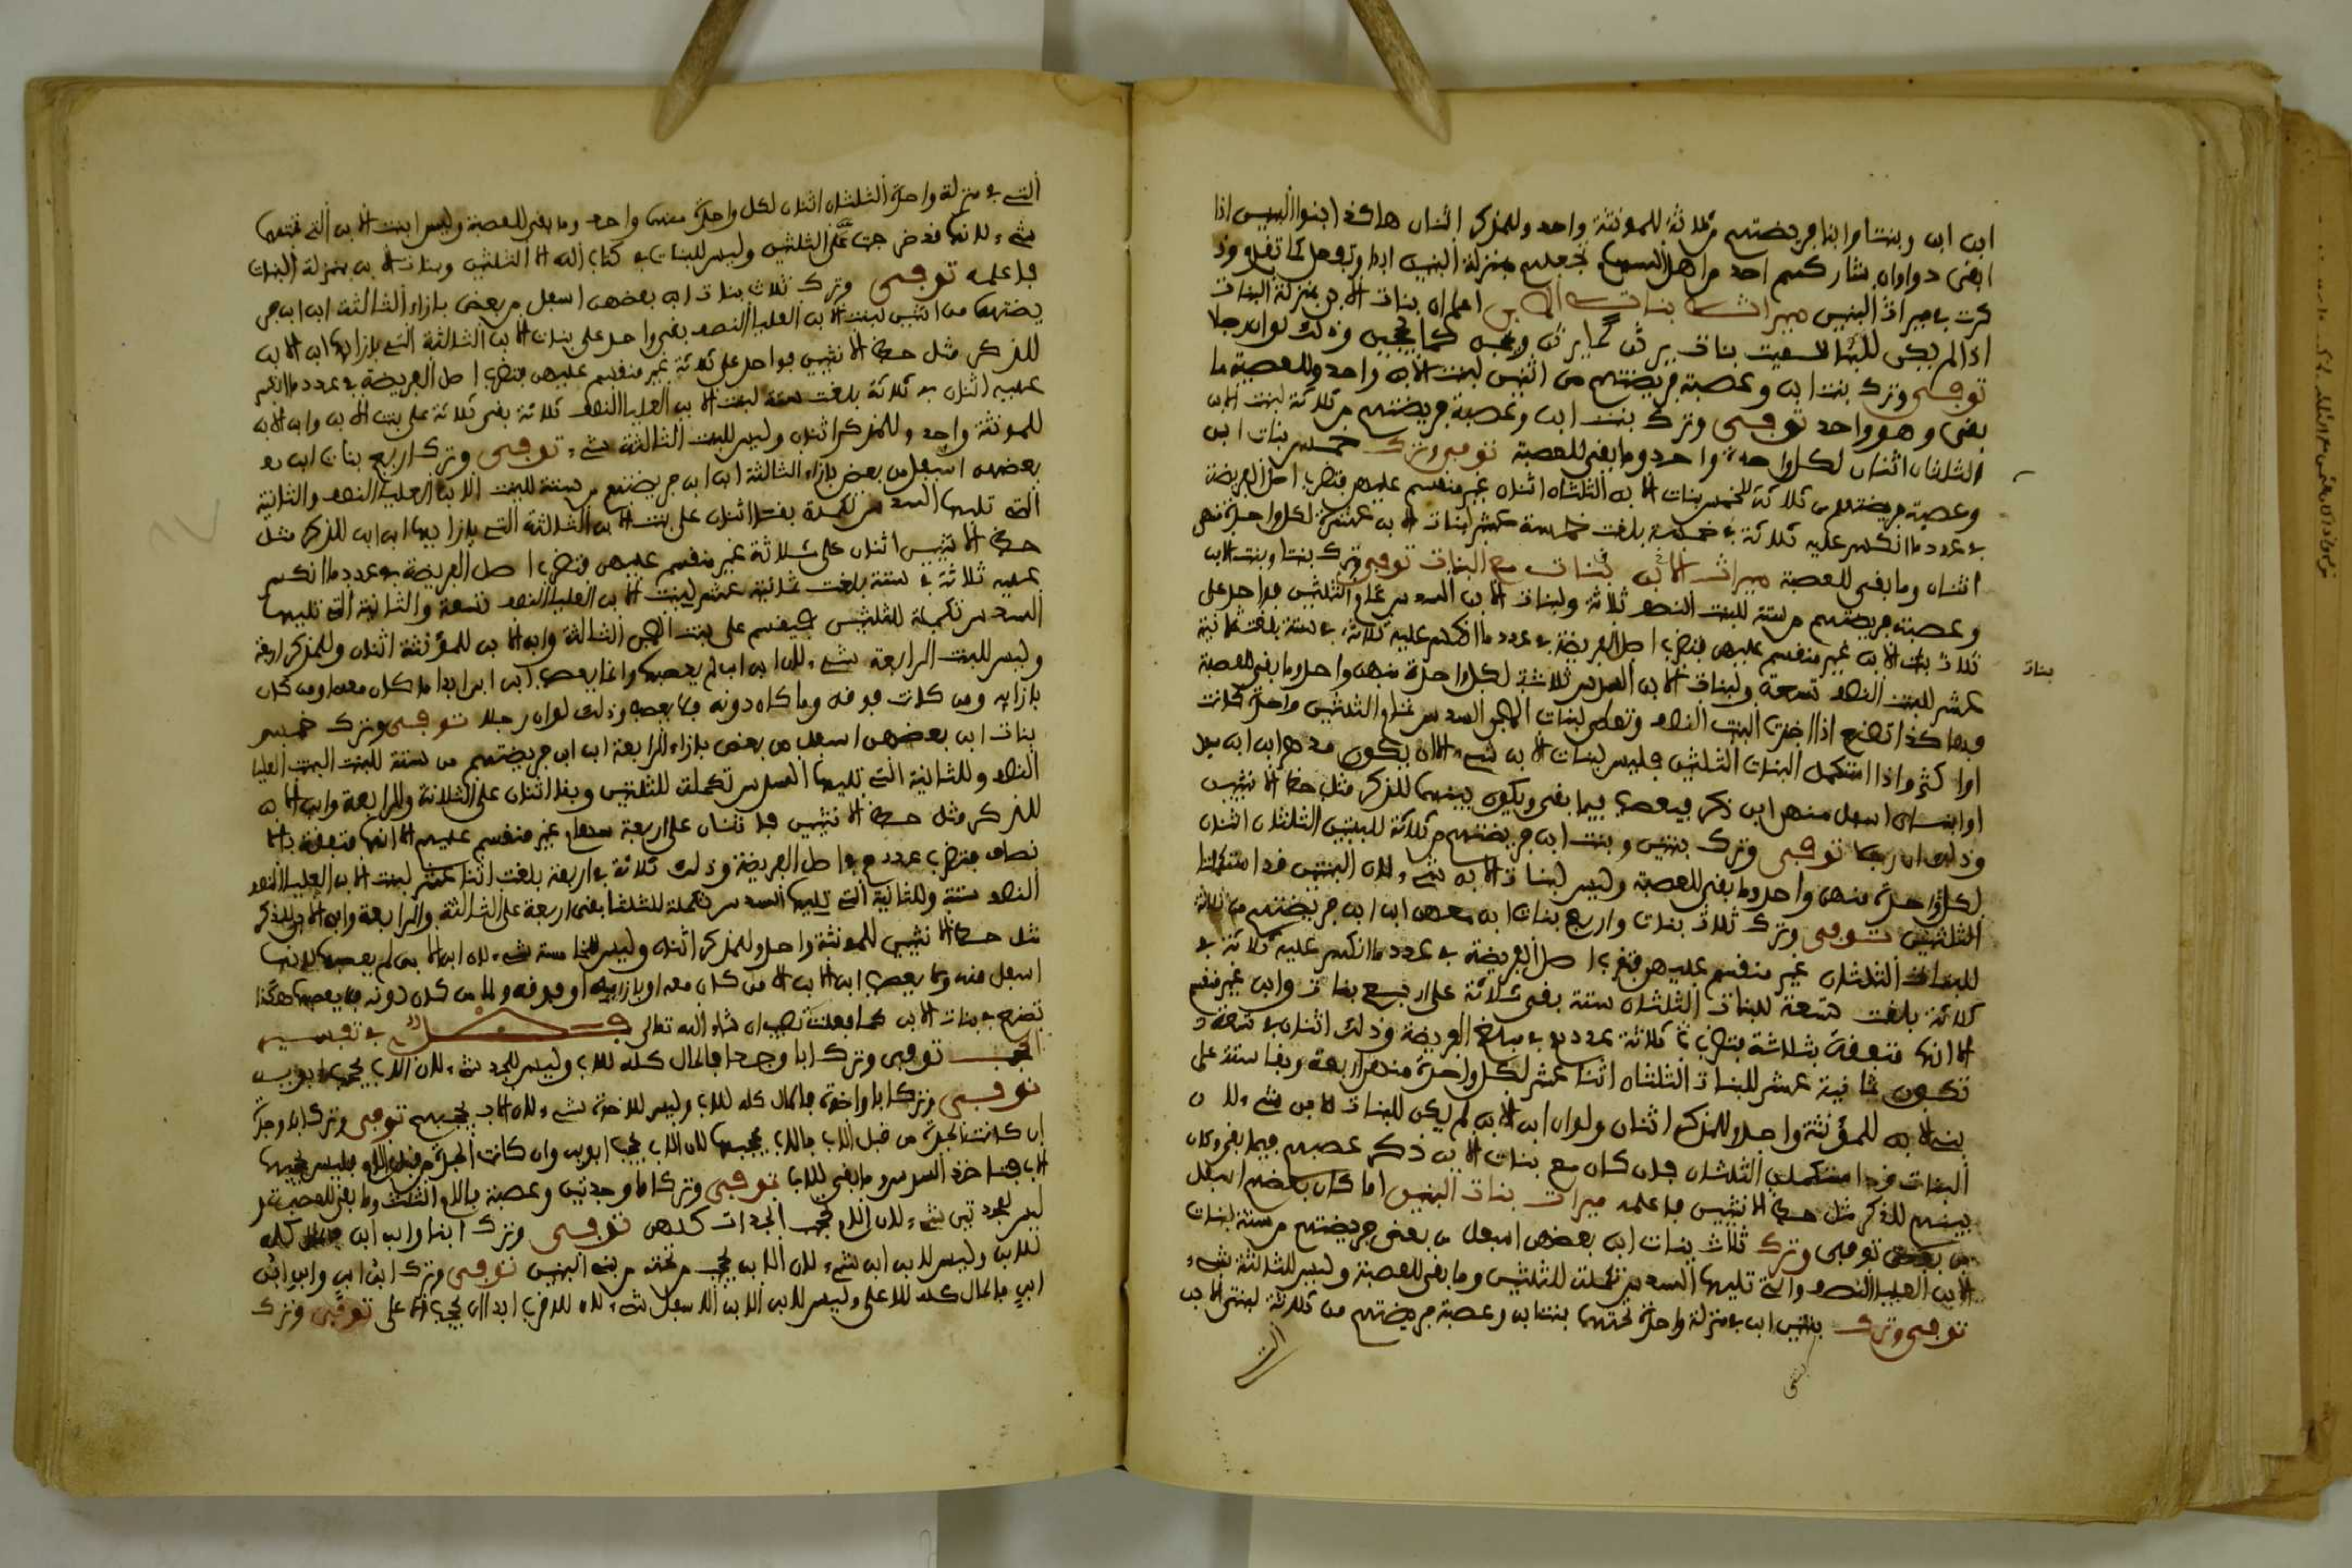 ابن ابن وبنتا وابنا فريضتهم من ثلاثة للمونثة واحد وللمذكر اثنان هاكذا ابنوا البنين اذا
كرت في ميراث البنين ميراث بنات الابن اعلم ان بنات الابن بمنزلة البنات
توفي وترك بنت ابن وعصبة فريضتهم من اثنين لبنت الابن واحد وللعصبة ما
بقي وهو واحد توفي وترك بنت ابن وعصبة فريضتهم من ثلاثة لبنت الابن
الثلثان اثنان لكل واحدة واحد وما بقي للعصبة توفي وترك خمس بنات ابن
وعصبة فريضتهم من ثلاثة لخمس بنات الابن الثلثان اثنان غير منقسم عليهن فتضرب اصل الفريضة
في عدد ما انكسر عليه ثلاثة في خمسة بلغت خمسة عشر لبنات الابن عشرة لكل واحدة منهن
اثنان وما بقي للعصبة ميراث الابن بنات مع البنات توفي وترك بنتا وبنت الابن
وعصبة فريضتهم من ستة للبنت النصف ثلاثة ولبنات الابن السدس تمام الثلثين فواحد على
ثلاث بنات الابن غير منقسم عليهن فتضرب اصل الفريضة في عدد ما انكسر عليه ثلاثة في ستة بلغت ثمانية
بنات
عشر للبنت النصف تسعة ولبنات الابن السدس ثلاثة لكل واحدة منهن واحد وما بقي للعصبة
فهاكذا تصنع اذا اخذت البنت النصف وتعطي لبنات الابن السدس تمام الثلثين واحدة كانت
او اكثر واذا استكمل البنات الثلثين فليس لبنات الابن شيء الا ان يكون معهن ابن ابن
وذلك توفي وترك بنتين وبنت ابن فريضتهم من ثلاثة للبنتين الثلثان اثنان
لكل واحدة منهن واحد وما بقي للعصبة وليس لبنات الابن شيء لان البنتين قد استكملتا
الثلثين توفي وترك ثلاث بنات واربع بنات ابن معهن ابن ابن فريضتهم من ثلاثة
للبنات الثلثان غير منقسم عليهن فتضرب اصل الفريضة في عدد ما انكسر عليه ثلاثة في
ثلاثة بلغت تسعة للبنات الثلثان ستة بقي ثلاثة على اربع بنات وابن غير منقسم
تكون ثمانية عشر للبنات الثلثان اثنا عشر لكل واحدة منهن اربعة وبقا ستة على
بني الابن للمؤنثة واحد وللمذكر اثنان ولولا ابن الابن لم يكن للبنات الابن شيء لان
البنات قد استكملن الثلثان فان كان مع بنات الابن ذكر عصبهم فيما بقي وكان
بينهم للذكر مثل حظ الانثيين فاعلمه ميراث بنات البنين اما كان بعضهم اسفل
من بعض توفي وترك ثلاث بنات ابن بعضهن اسفل من بعض فريضتهم من ستة لبنات
الابن العليا النصف والتي تليها السدس تكملة للثلثين وما بقي للعصبة وليس للثالثة شيء
توفي وترك بنتين ابن في منزلة واحدة تحتهما بنت ابن وعصبة فريضتهم من ثلاثة لبنتي الابن
التي
التي في منزلة واحدة الثلثان اثنان لكل واحدة منهما واحد وما بقي للعصبة وليس ابنت الابن التي تحتهما
شيء لانه فرض جت على الثلثين وليس للبنات في كتاب الله الا الثلثين وبنات الابن بمنزلة البنات
فاعلمه توفي وترك ثلاث بنات ابن بعضهن اسفل من بعض بازاء الثالثة ابن ابن فر
يضتهم من اثنين لبنت الابن العليا النصف بقي واحد على بنات الابن الثلاثة التي بازائها ابن الابن
للذكر مثل حظ الانثيين فواحد على ثلاثة غير منقسم عليهن فتضرب اصل الفريضة في عدد ما انكسر
عليه اثنان في ثلاثة بلغت ستة لبنت الابن العليا النصف ثلاثة بقي ثلاثة على بنت الابن وابن الابن
للمونثة واحد وللمذكر اثنان وليس للبنت الثالثة شيء توفي وترك اربع بنات ابن
بعضهن اسفل من بعض بازاء الثالثة ابن ابن فريضتهم من ستة للبنت الابن العليا النصف والثانية
التي تليها السدس تكملة بقي اثنان على بنت الابن الثالثة التي بازائها ابن ابن للذكر مثل
حظ الانثيين اثنان على ثلاثة غير منقسم عليهن فتضرب اصل الفريضة في عدد ما انكسر
عليه ثلاثة في ستة بلغت ثمانية عشر لبنت الابن العليا النصف تسعة والثانية التي تليها
السدس تكملة للثلثين على بنت الابن الثالثة وابن الابن للمؤنثة اثنان وللمذكر اربعة
وليس للبنت الرابعة شيء لان ابن ابن لم يعصبها وانما يعصب ابن ابن ابدا ما كان معه او من كان
بازائه ومن كانت فوقه وما كان دونه فلا يعصبه وذلك لو ان رجلا توفي وترك خمس
بنات ابن بعضهن اسفل من بعض بازاء الرابعة ابن ابن فريضتهم من ستة للبنت البنت العليا
النصف وللثانية التي تليها السدس تكملة للثلثين وبقا اثنان على الثلاثة والرابعة وابن الابن
للذكر مثل حظ الانثيين فاثنان على اربعة غير منقسم عليهم الا انها متفقة بالا
نصاف فتضرب عددهم في اصل الفريضة وذلك ثلاثة في اربعة بلغت اثنا عشر لبنت الابن العليا النصف
النصف ستة وللثانية التي تليها السدس تكملة للثلثا بقي اربعة على الثالثة والرابعة وابن الابن للذكر
مثل حظ الانثيين للمونثة واحد وللمذكر اثنان وليس للخامسة شيء لان ابن الابن لم يعصبها لانها
اسفل منه وانما يعصب ابن الابن من كان معه او بازائه او فوقه واما من كان دونه فلا يعصبها هكذا
تصنع في بنات الابن كما فعلت تصب ان شاء الله تعالى فصل في تفسير
الحجب توفي وترك ابا وجدا فالمال كله للاب وليس للجد شيء لان الاب يحجب ابويه
توفي وترك ابا واخوة فالمال كله للاب وليس للاخوة شيء لان الاب يحجبهم توفي وترك ابا وجدة
ان كانت الجدة من قبل الاب فالاب يحجبها لان الاب يحجب ابويه وان كانت الجدة من قبل الام فليس يحجبها
الاب فتاخذ السدس وما بقي للاب توفي وترك اما وجدتين وعصبة فللام الثلث وما بقي للعصبة و
ليس لجدتين شيء لان الام تحجب الجدات كلهن توفي وترك ابنا وابن ابن فالمال كله
للابن وليس لابن ابن شيء لان الابن يحجب من تحته من بني البنين توفي وترك ابن ابن وابن ابن
ابن فالمال كله للاعلى وليس للابن الابن الاسفل شيء لان الاقرب ابدا يحجب الاعلى توفي وترك